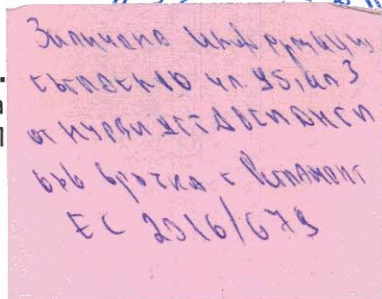 Заличена информация
съгласно чл 45, ал 3
от
във връзка с Регламент
ЕС 2016/679